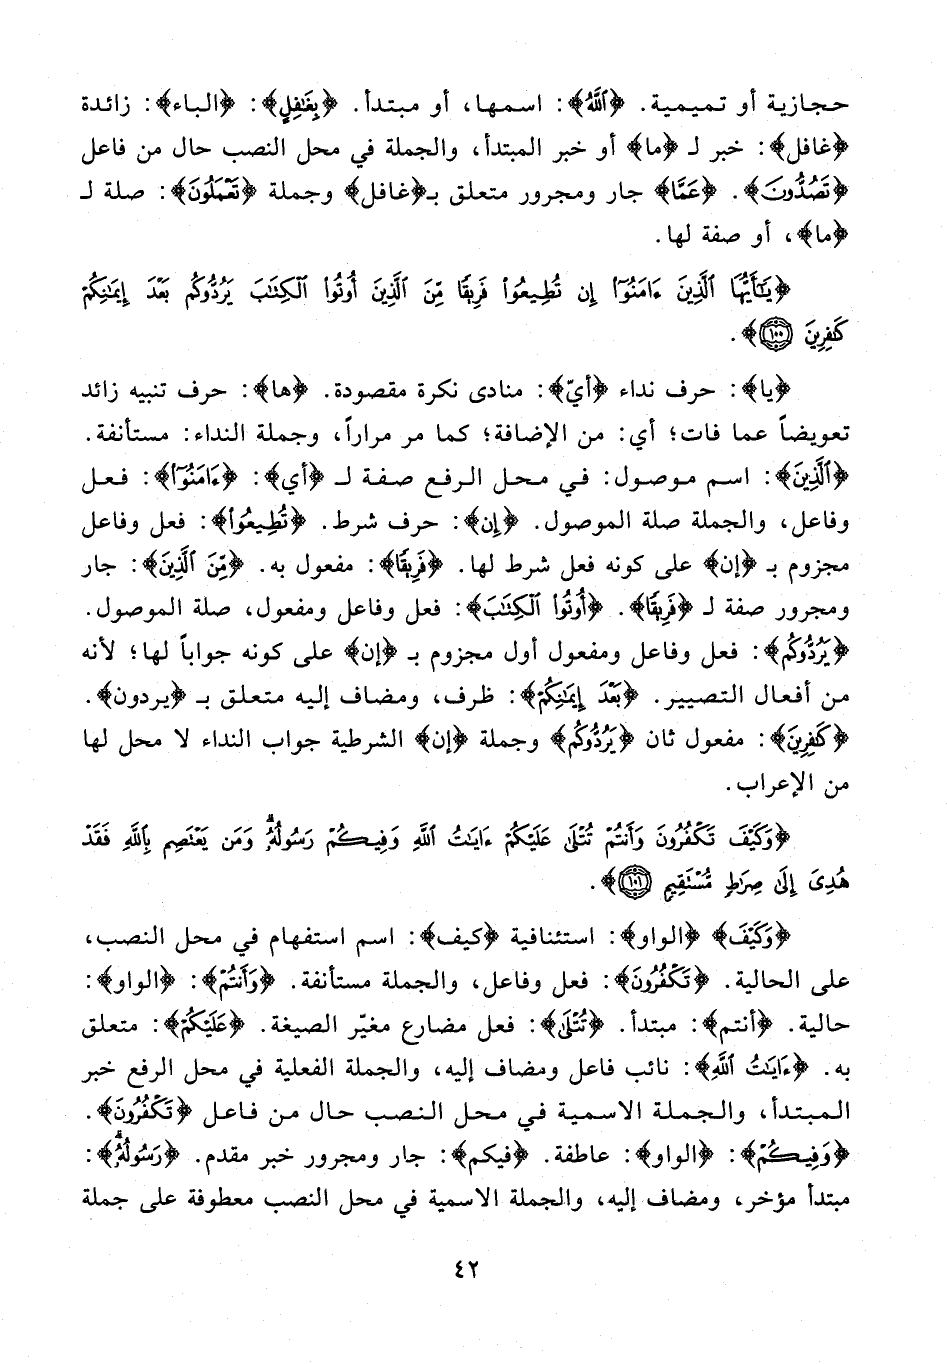 حجازية أو تميمية. ﴿ٱللَّهُ﴾: اسمها، أو مبتدأ. ﴿بِغَٰفِلٍ﴾: ﴿الباء﴾: زائدة
﴿غافل﴾: خبر لـ ﴿ما﴾ أو خبر المبتدأ، والجملة في محل النصب حال من فاعل
﴿تَصُدُّونَ﴾. ﴿عَمَّا﴾ جار ومجرور متعلق بـ﴿غافل﴾ وجملة ﴿تَعْمَلُونَ﴾: صلة لـ
﴿ما﴾، أو صفة لها.
﴿يَٰٓأَيُّهَا ٱلَّذِينَ ءَامَنُوٓا۟ إِن تُطِيعُوا۟ فَرِيقًا مِّنَ ٱلَّذِينَ أُوتُوا۟ ٱلْكِتَٰبَ يَرُدُّوكُم بَعْدَ إِيمَٰنِكُمْ
كَٰفِرِينَ ١٠٠﴾.
﴿يا﴾: حرف نداء ﴿أيّ﴾: منادى نكرة مقصودة. ﴿ها﴾: حرف تنبيه زائد
تعويضاً عما فات؛ أي: من الإضافة؛ كما مر مراراً، وجملة النداء: مستأنفة.
﴿ٱلَّذِينَ﴾: اسم موصول: في محل الرفع صفة لـ ﴿أي﴾: ﴿ءَامَنُوٓا۟﴾: فعل
وفاعل، والجملة صلة الموصول. ﴿إِن﴾: حرف شرط. ﴿تُطِيعُوا۟﴾: فعل وفاعل
مجزوم بـ ﴿إن﴾ على كونه فعل شرط لها. ﴿فَرِيقًا﴾: مفعول به. ﴿مِّنَ ٱلَّذِينَ﴾: جار
ومجرور صفة لـ ﴿فَرِيقًا﴾. ﴿أُوتُوا۟ ٱلْكِتَٰبَ﴾: فعل وفاعل ومفعول، صلة الموصول.
﴿يَرُدُّوكُم﴾: فعل وفاعل ومفعول أول مجزوم بـ ﴿إن﴾ على كونه جواباً لها؛ لأنه
من أفعال التصيير. ﴿بَعْدَ إِيمَٰنِكُمْ﴾: ظرف، ومضاف إليه متعلق بـ ﴿يردون﴾.
﴿كَٰفِرِينَ﴾: مفعول ثان ﴿يَرُدُّوكُم﴾ وجملة ﴿إن﴾ الشرطية جواب النداء لا محل لها
من الإعراب.
﴿وَكَيْفَ تَكْفُرُونَ وَأَنتُمْ تُتْلَىٰ عَلَيْكُمْ ءَايَٰتُ ٱللَّهِ وَفِيكُمْ رَسُولُهُۥ ۗ وَمَن يَعْتَصِم بِٱللَّهِ فَقَدْ
هُدِىَ إِلَىٰ صِرَٰطٍ مُّسْتَقِيمٍ ١٠١﴾.
﴿وَكَيْفَ﴾ ﴿الواو﴾: استئنافية ﴿كيف﴾: اسم استفهام في محل النصب،
على الحالية. ﴿تَكْفُرُونَ﴾: فعل وفاعل، والجملة مستأنفة. ﴿وَأَنتُمْ﴾: ﴿الواو﴾:
حالية. ﴿أنتم﴾: مبتدأ. ﴿تُتْلَىٰ﴾: فعل مضارع مغيّر الصيغة. ﴿عَلَيْكُمْ﴾: متعلق
به. ﴿ءَايَٰتُ ٱللَّهِ﴾: نائب فاعل ومضاف إليه، والجملة الفعلية في محل الرفع خبر
المبتدأ، والجملة الاسمية في محل النصب حال من فاعل ﴿تَكْفُرُونَ﴾.
﴿وَفِيكُمْ﴾: ﴿الواو﴾: عاطفة. ﴿فيكم﴾: جار ومجرور خبر مقدم. ﴿رَسُولُهُۥ ۗ﴾:
مبتدأ مؤخر، ومضاف إليه، والجملة الاسمية في محل النصب معطوفة على جملة
٤٢